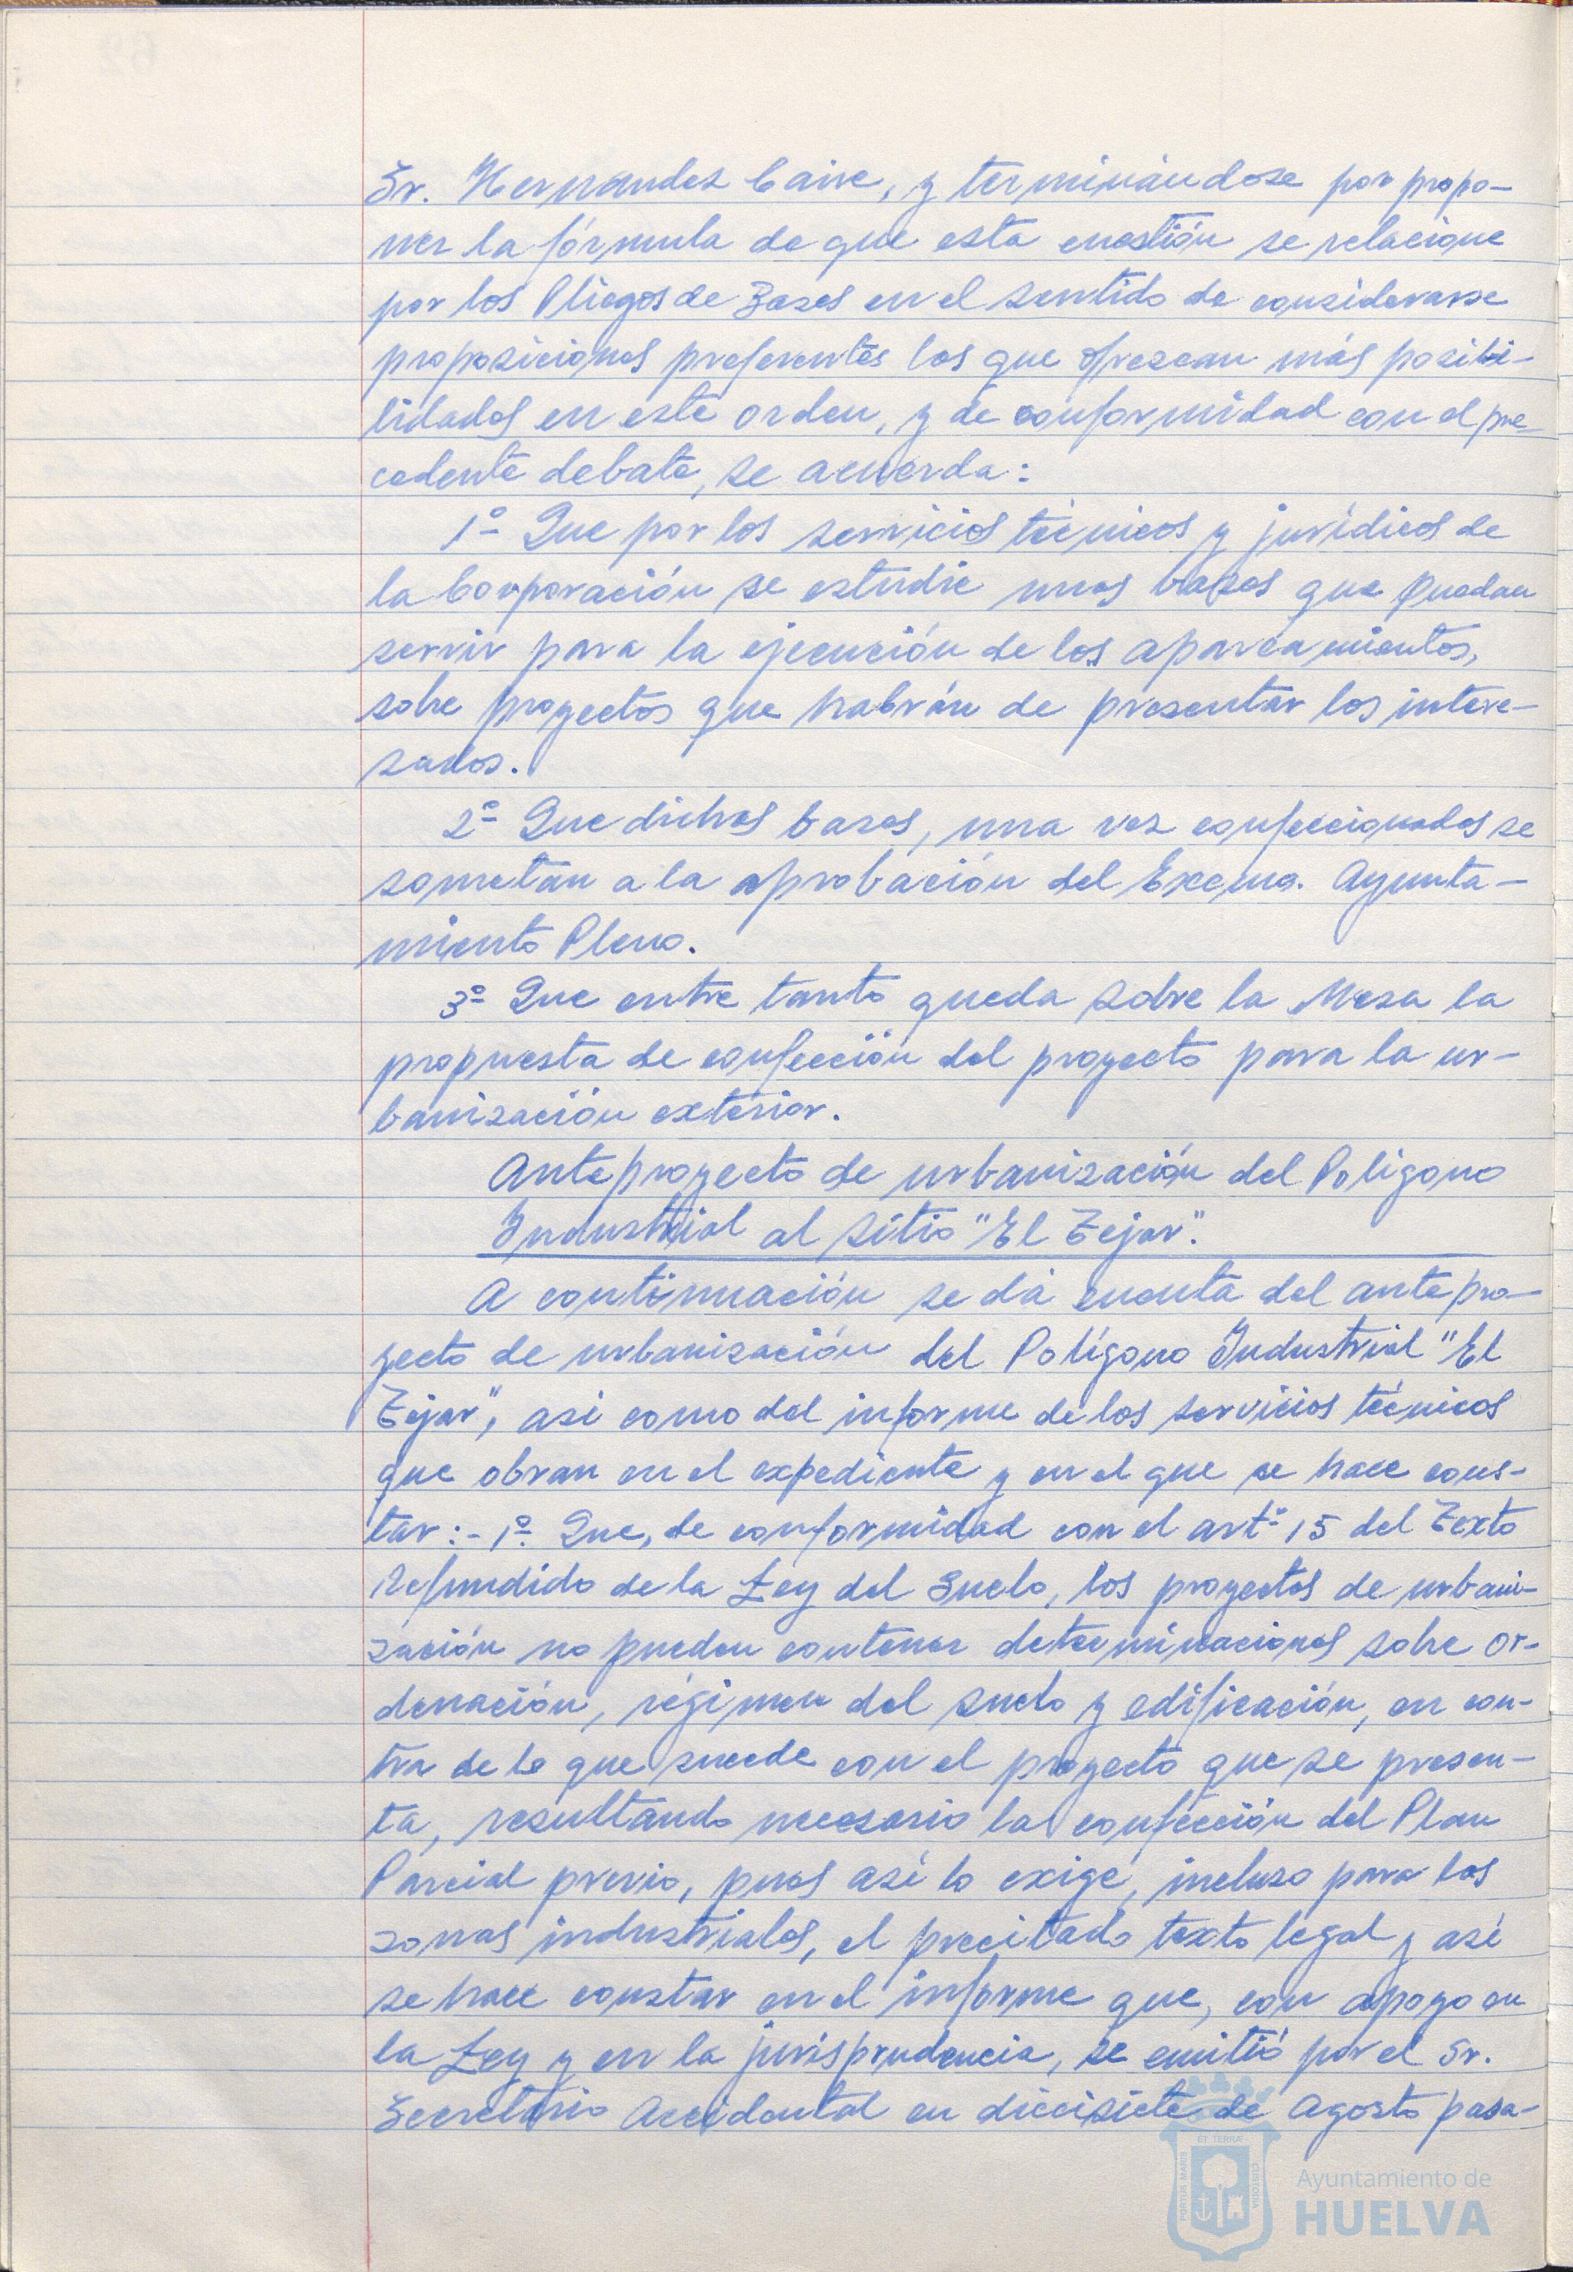 Sr. Hernandez Caire, y terminándose por propo-
ner la fórmula de que esta cuestión se relacione
por los Pliegos de Bases en el sentido de considerarse
proposiciones preferentes las que ofrezcan más posibi-
lidades en este orden, y de conformidad con el pre-
cedente debate, se acuerda:
1º Que por los servicios técnicos y jurídicos de
la Corporación se estudie unas bases que puedan
servir para la ejecución de los aparcamientos,
sobre proyectos que habrán de presentar los intere-
sados.
2º Que dichas bases, una vez confeccionadas se
sometan a la aprobación del Excmo. Ayunta-
miento Pleno.
3º Que entre tanto queda sobre la Mesa la
propuesta de confección del proyecto para la ur-
banización exterior.
Anteproyecto de urbanización del Poligono
Industrial al sitio "El Tejar".
A continuación se dá cuenta del antepro-
yecto de urbanización del Polígono Industrial "El
Tejar", asi como del informe de los servicios técnicos
que obran en el expediente y en el que se hace cons-
tar:- 1º. Que, de conformidad con el artº 15 del Texto
Refundido de la Ley del Suelo, los proyectos de urbani-
zación no pueden contener determinaciones sobre or-
denación, régimen del suelo y edificación, en con-
tra de lo que sucede con el proyecto que se presen-
ta, resultando necesario la confección del Plan
Parcial previo, pues así lo exige, incluso para las
zonas industriales, el precitado texto legal y así
se hace constar en el informe que, con apoyo en
la Ley y en la jurisprudencia, se emitió por el Sr.
Secretario Accidental en diecisiete de Agosto pasa-
ET TERRÆ
PORTUS MARIS
CUSTODIA
Ayuntamiento de
HUELVA